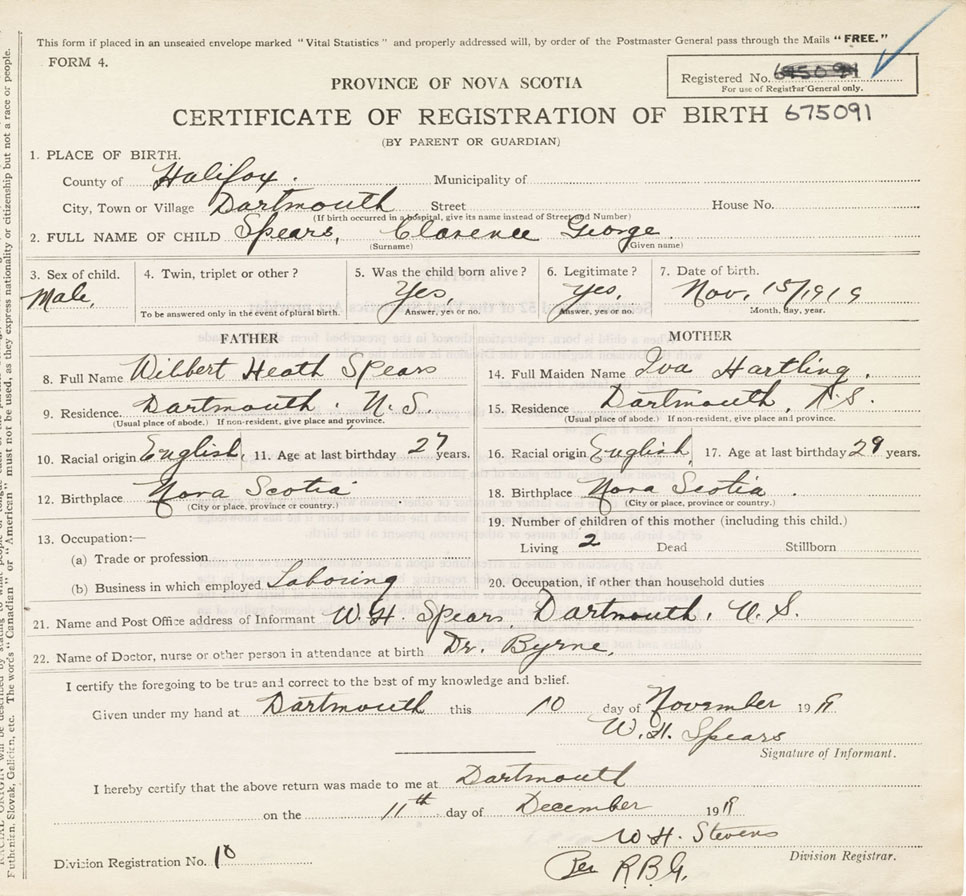 This form if placed in an unsealed envelope marked "Vital Statistics" and properly addressed will, by order of the Postmaster General pass through the Mails "FREE."
FORM 4.
Registered No.
For use of Registrar General only.
PROVINCE OF NOVA SCOTIA
CERTIFICATE OF REGISTRATION OF BIRTH 675091
(BY PARENT OR GUARDIAN)
1. PLACE OF BIRTH.
County of Halifax. Municipality of
City, Town or Village Dartmouth Street House No.
(If birth occurred in a hospital, give its name instead of Street and Number)
2. FULL NAME OF CHILD Spears, Clarence George.
(Surname) (Given name)
3. Sex of child. 4. Twin, triplet or other? 5. Was the child born alive? 6. Legitimate? 7. Date of birth.
Male, Yes, Yes, Nov. 15/1919
To be answered only in the event of plural birth. Answer, yes or no. Answer, yes or no. Month, day, year.
FATHER MOTHER
8. Full Name Wilbert Heath Spears 14. Full Maiden Name Iva Hartling.
9. Residence. Dartmouth. N.S. 15. Residence Dartmouth, N.S.
(Usual place of abode.) If non-resident, give place and province. (Usual place of abode.) If non-resident, give place and province.
10. Racial origin English, 11. Age at last birthday 27 years. 16. Racial origin English, 17. Age at last birthday 29 years.
12. Birthplace Nova Scotia 18. Birthplace Nova Scotia.
(City or place, province or country.) (City or place, province or country.)
19. Number of children of this mother (including this child.)
13. Occupation:— Living 2 Dead Stillborn
(a) Trade or profession
(b) Business in which employed Laboring 20. Occupation, if other than household duties
21. Name and Post Office address of Informant W. H. Spears, Dartmouth. N. S.
22. Name of Doctor, nurse or other person in attendance at birth Dr. Byrne,
I certify the foregoing to be true and correct to the best of my knowledge and belief.
Given under my hand at Dartmouth this 10 day of November 19 19
W. H. Spears
Signature of Informant.
I hereby certify that the above return was made to me at Dartmouth
on the 11th day of December 19 19
W H. Stevens
Division Registration No. 10 Division Registrar.
Per R.B.G.